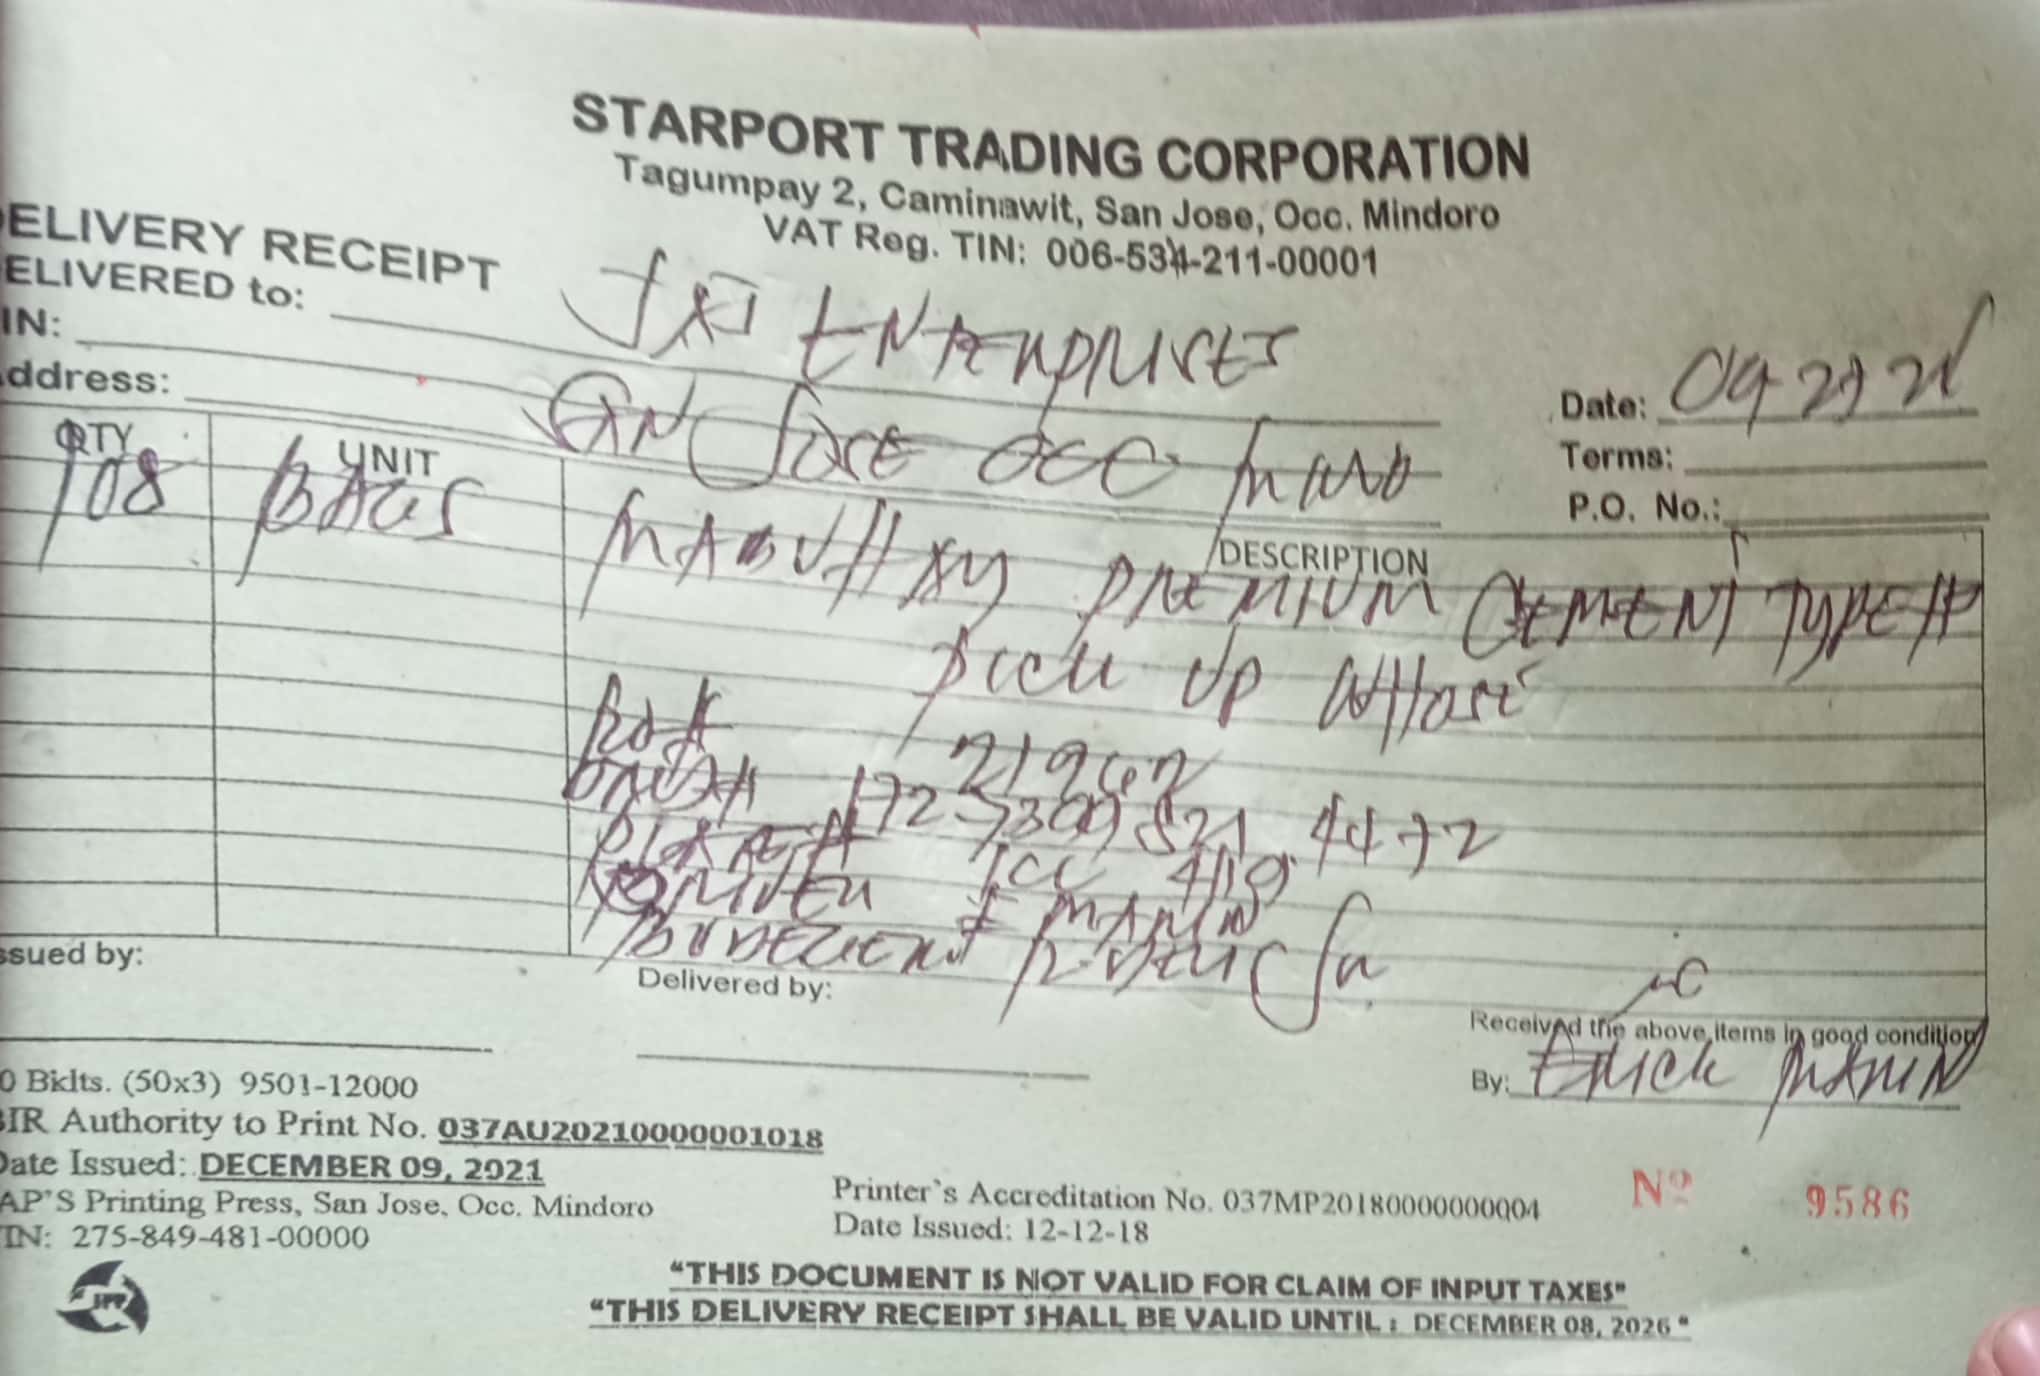 STARPORT TRADING CORPORATION
Tagumpay 2, Caminawit, San Jose, Occ. Mindoro
VAT Reg. TIN: 006-534-211-00001
ELIVERY RECEIPT
ELIVERED to: ENTERPRISES
IN:
ddress: SAN JOSE OCC
Date:
Terms:
P.O. No.:
QTY UNIT DESCRIPTION
108 BAGS PREMIUM CEMENT TYPE
PICK UP WHOSE
21962
4472
PLATE #
DRIVER E MARIN
ssued by:
Delivered by:
Received the above items in good condition
By: ERICK MARIN
0 Bklts. (50x3) 9501-12000
IR Authority to Print No. 037AU20210000001018
Date Issued: DECEMBER 09, 2021
AP'S Printing Press, San Jose, Occ. Mindoro
IN: 275-849-481-00000
Printer's Accreditation No. 037MP20180000000004
Date Issued: 12-12-18
Nº 9586
"THIS DOCUMENT IS NOT VALID FOR CLAIM OF INPUT TAXES"
"THIS DELIVERY RECEIPT SHALL BE VALID UNTIL : DECEMBER 08, 2026 "